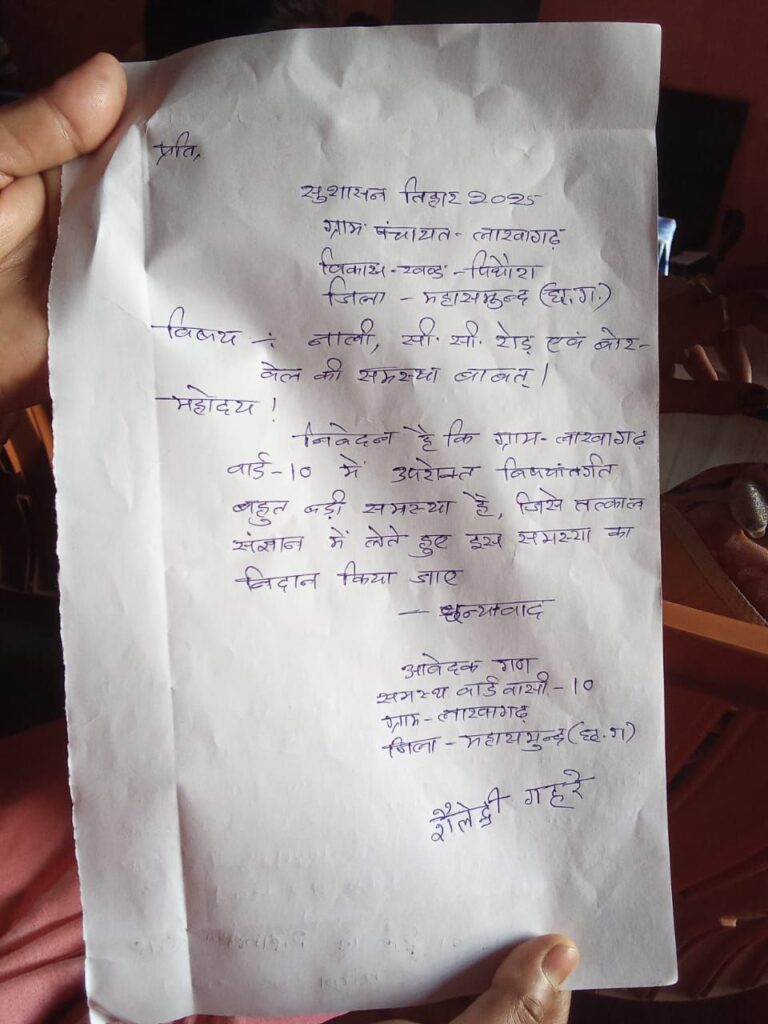 प्रति,
सुशासन तिहार 2025
ग्राम पंचायत - लाखागढ़
विकास-खण्ड - पिथौरा
जिला - महासमुन्द (छ.ग.)
विषय :- नाली, सी.सी. रोड़ एवं बोर-
वेल की समस्या बाबत्।
महोदय !
निवेदन है कि ग्राम-लाखागढ़
वार्ड-10 में उपरोक्त विषयांतर्गत
बहुत बड़ी समस्या है, जिसे तत्काल
संज्ञान में लेते हुए इस समस्या का
निदान किया जाए
- धन्यवाद
आवेदक गण
समस्थ वार्ड वासी-10
ग्राम-लाखागढ़
जिला - महासमुन्द (छ.ग)
शैलेन्द्री गहरे